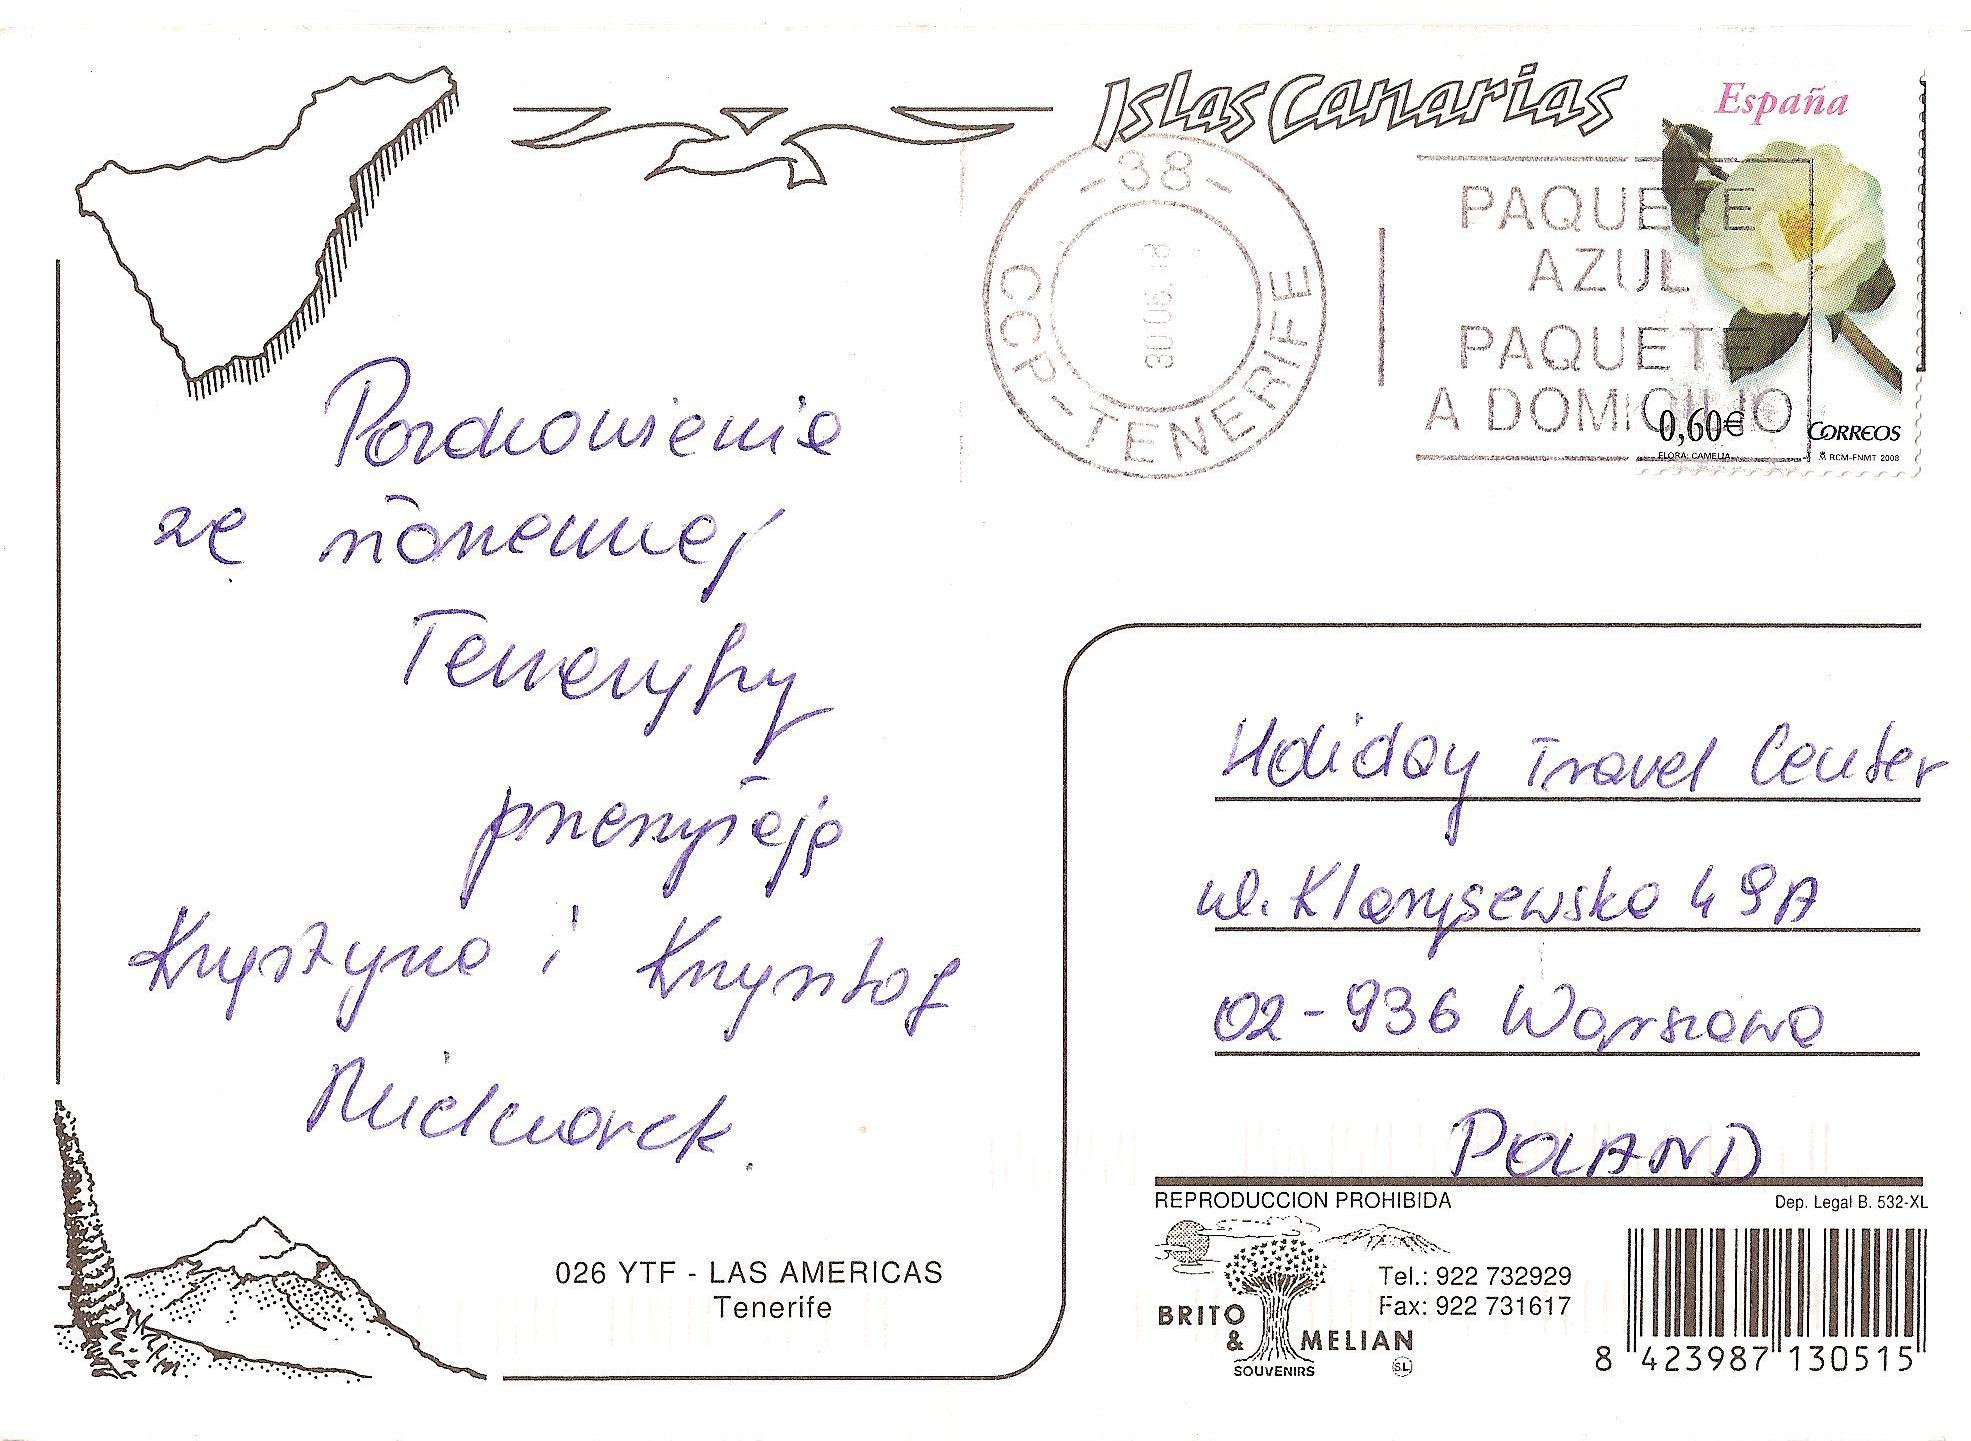 Islas Canarias
España
- 38 -
CCP - TENERIFE
30 06
PAQUETE
AZUL
PAQUETE
A DOMICILIO
0,60€
CORREOS
FLORA: CAMELIA
RCM-FNMT 2008
Pozdrowienia
ze słonecznej
Teneryfy
przesyłają
Krystyna i Krzysztof
Mielczarek.
Holiday Travel Center
ul. Klarysewska 49A
02-936 Warszawa
POLAND
REPRODUCCION PROHIBIDA
Dep. Legal B. 532-XL
026 YTF - LAS AMERICAS
Tenerife
BRITO
&
MELIAN
SOUVENIRS
SL
Tel.: 922 732929
Fax: 922 731617
8 423987 130515